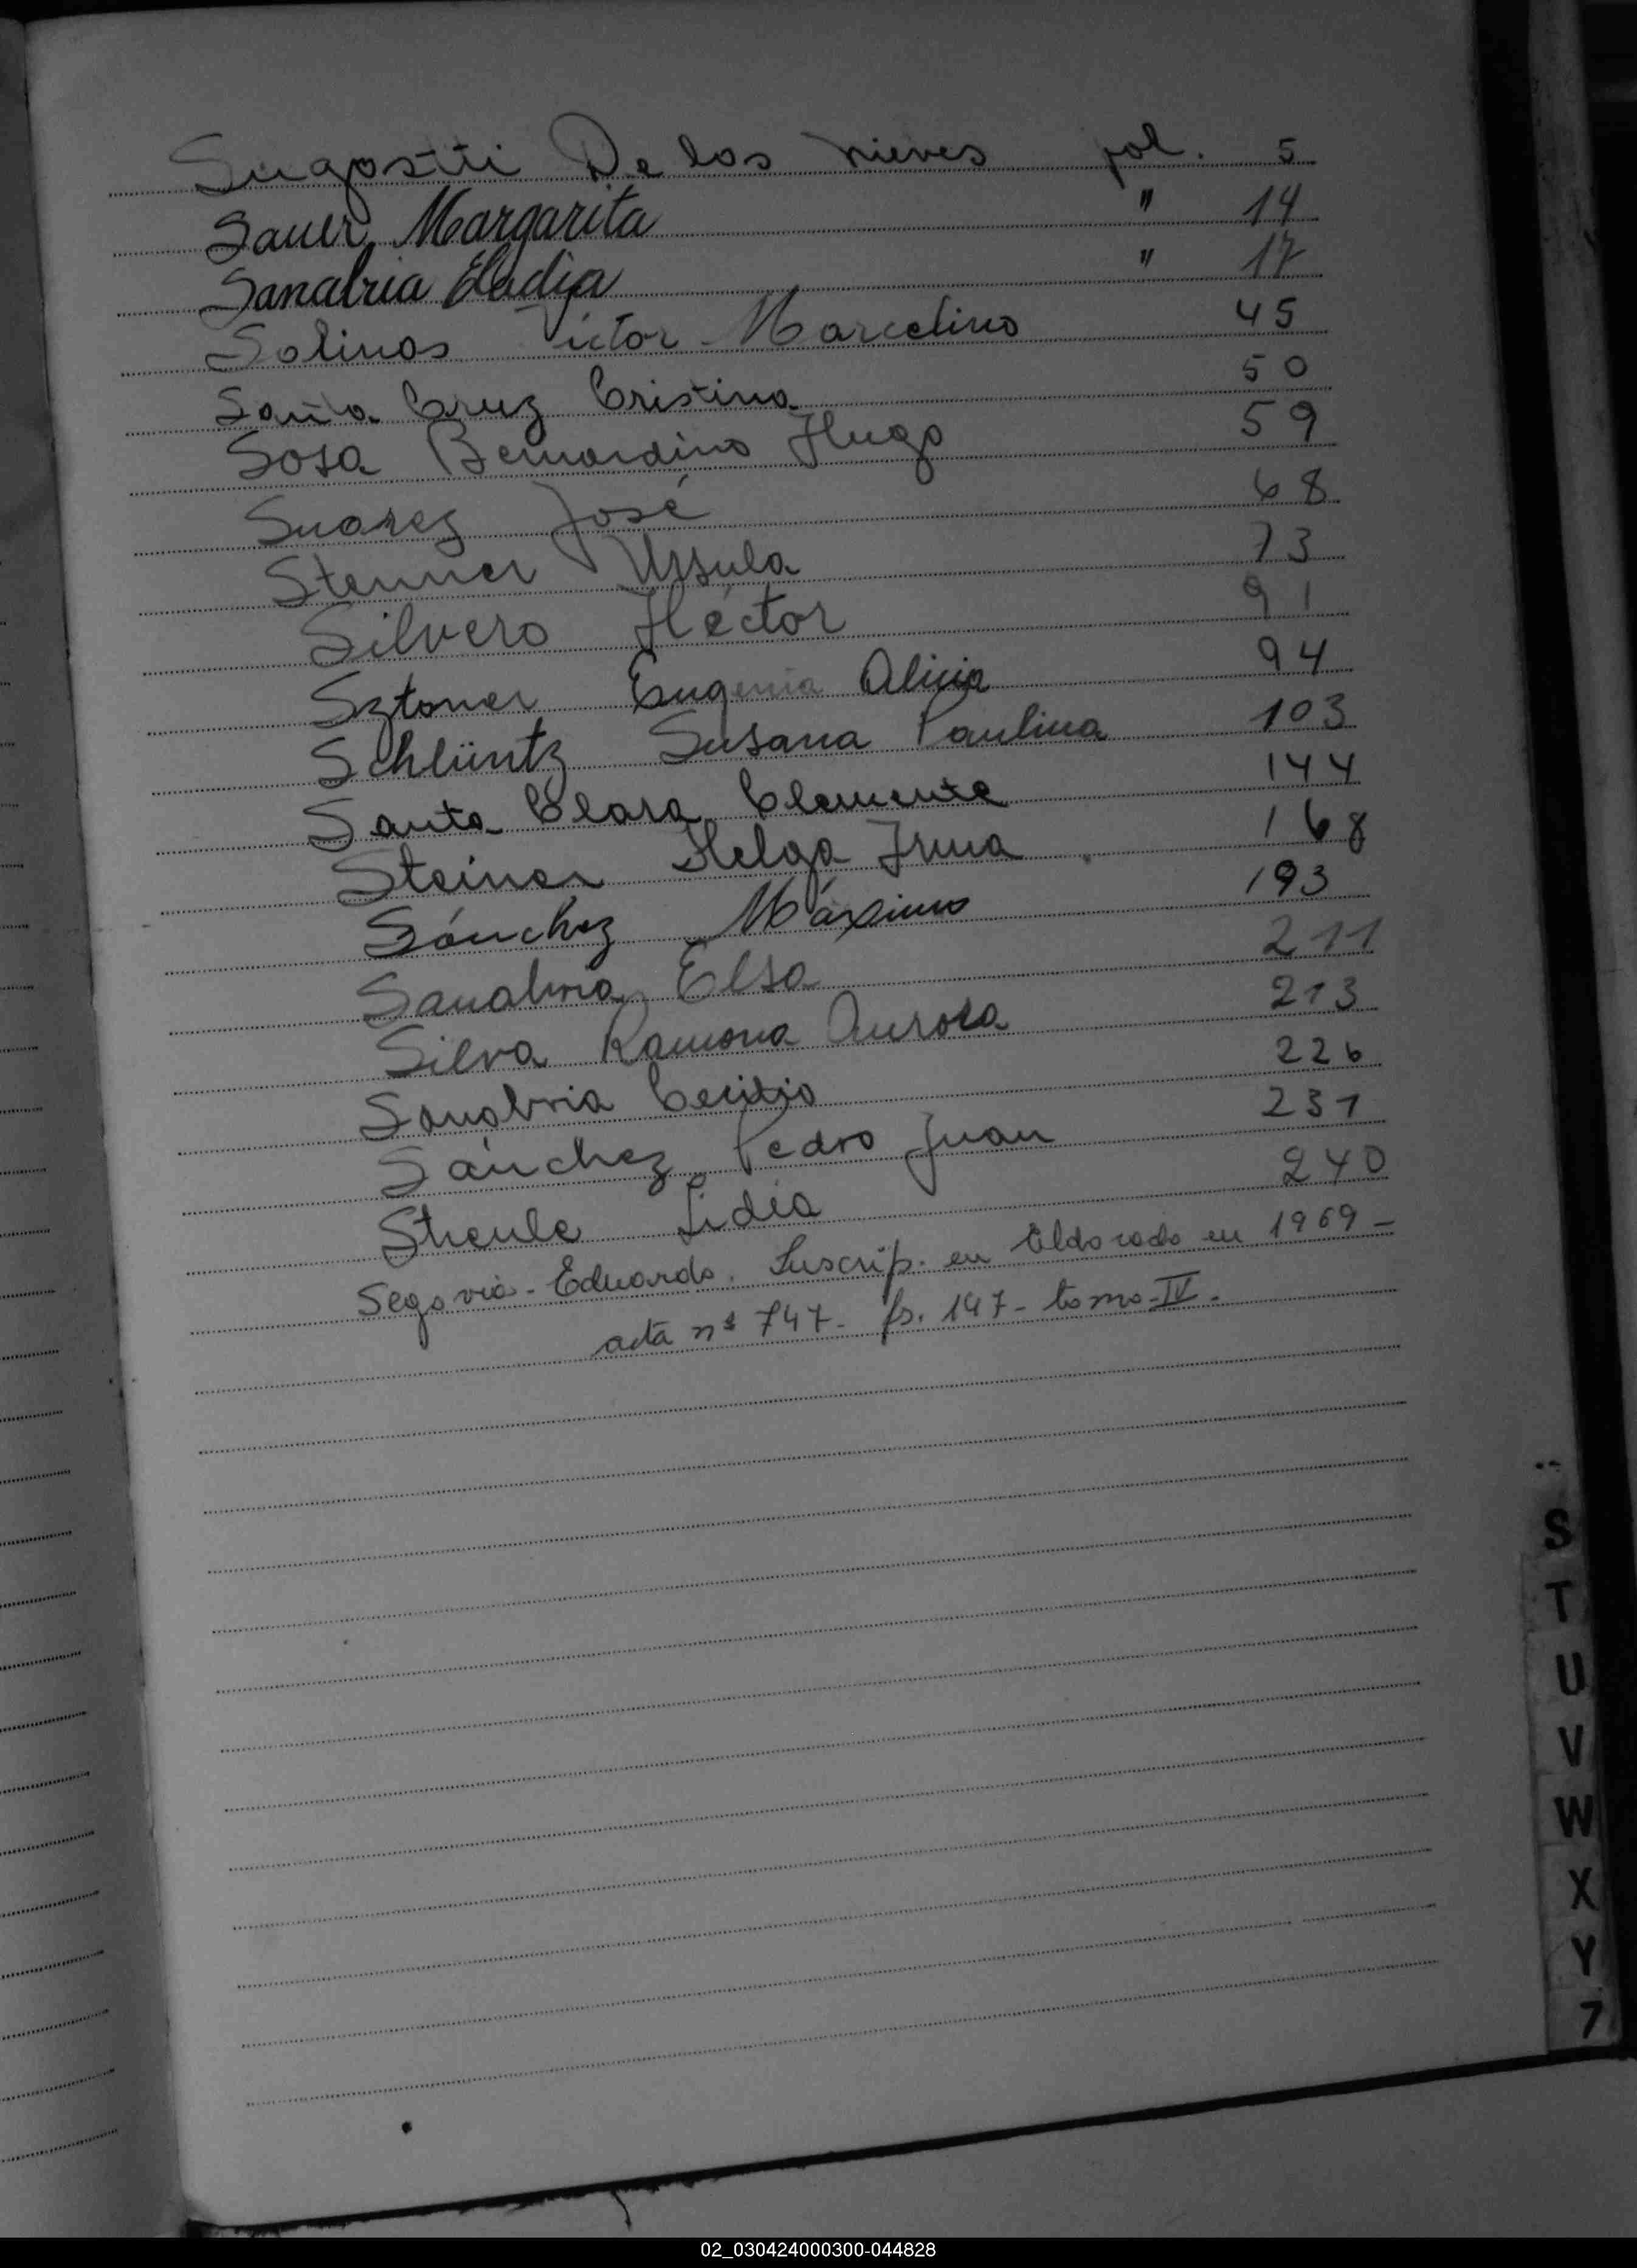 Sugostti De las nieves fol. 5
Sauer Margarita " 14
Sanabria Eladia " 17
Solinas Victor Marcelino 45
Santa Cruz Cristina 50
Sosa Bernardino Hugo 59
Suarez José 68
Stenner Ursula 73
Silvero Héctor 91
Sztoner Eugenia Alicia 94
Schlüntz Susana Paulina 103
Santa Clara Clemente 144
Steiner Helga Irma 168
Sánchez Máximo 193
Sanabria Elsa 211
Silva Ramona Aurora 213
Sanabria Cecilio 226
Sánchez Pedro Juan 231
Streule Lidia 240
Segovia - Eduardo. Inscrip. en Eldorado en 1969 -
acta nº 747 - fs. 147 - tomo - IV -
S
T
U
V
W
X
Y
Z
02_030424000300-044828